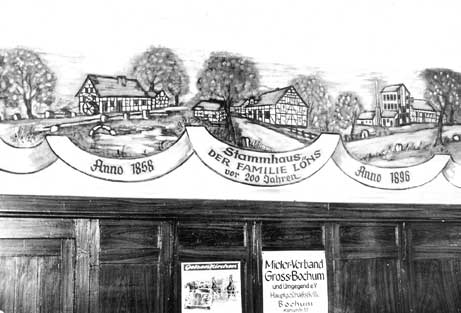 Anno 1858
Stammhaus
DER FAMILIE LÖNS
vor 200 Jahren
Anno 1896
Gelsenkirchen
Mieter-Verband
Gross-Bochum
und Umgegend e.V.
Hauptgeschäftsstelle
Bochum